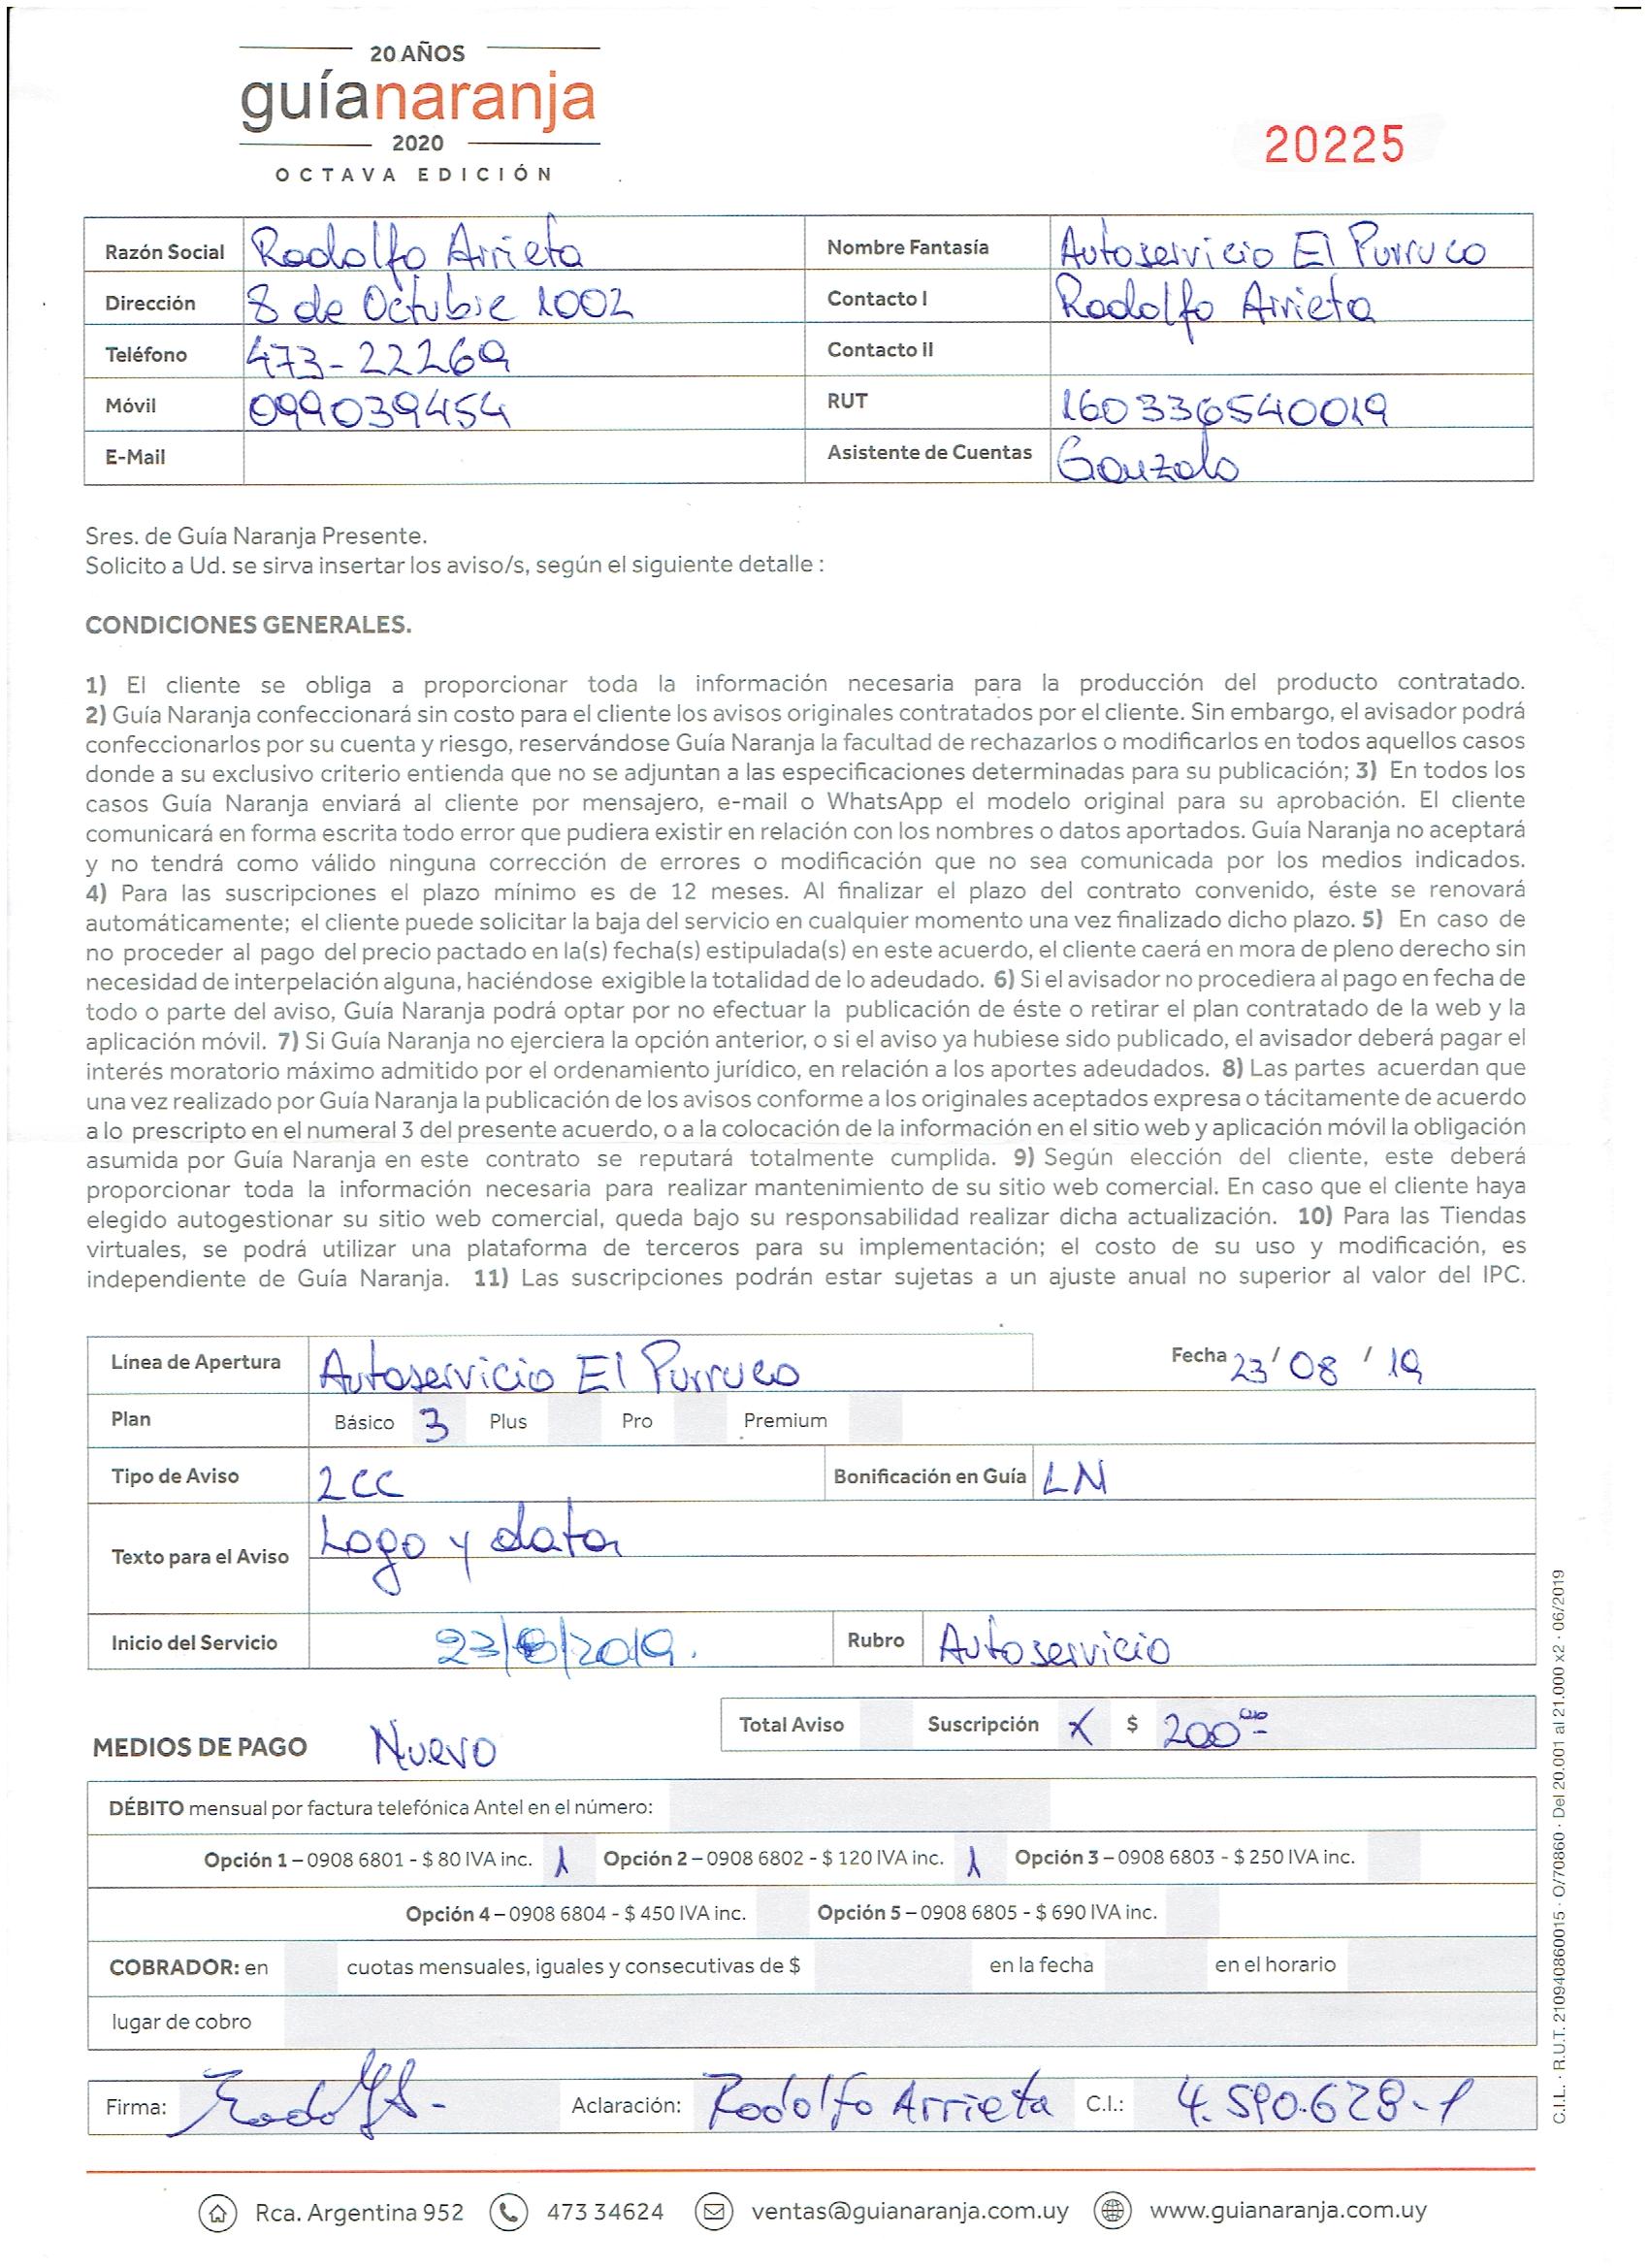 20 AÑOS
guíanaranja
2020
OCTAVA EDICIÓN
20225
Razón Social Rodolfo Arrieta Nombre Fantasía Autoservicio El Purruco
Dirección 8 de Octubre 1002 Contacto I Rodolfo Arrieta
Teléfono 473-22269 Contacto II
Móvil 099039454 RUT 160336540019
E-Mail Asistente de Cuentas Gonzalo
Sres. de Guía Naranja Presente.
Solicito a Ud. se sirva insertar los aviso/s, según el siguiente detalle :
CONDICIONES GENERALES.
1) El cliente se obliga a proporcionar toda la información necesaria para la producción del producto contratado.
2) Guía Naranja confeccionará sin costo para el cliente los avisos originales contratados por el cliente. Sin embargo, el avisador podrá
confeccionarlos por su cuenta y riesgo, reservándose Guía Naranja la facultad de rechazarlos o modificarlos en todos aquellos casos
donde a su exclusivo criterio entienda que no se adjuntan a las especificaciones determinadas para su publicación; 3) En todos los
casos Guía Naranja enviará al cliente por mensajero, e-mail o WhatsApp el modelo original para su aprobación. El cliente
comunicará en forma escrita todo error que pudiera existir en relación con los nombres o datos aportados. Guía Naranja no aceptará
y no tendrá como válido ninguna corrección de errores o modificación que no sea comunicada por los medios indicados.
4) Para las suscripciones el plazo mínimo es de 12 meses. Al finalizar el plazo del contrato convenido, éste se renovará
automáticamente; el cliente puede solicitar la baja del servicio en cualquier momento una vez finalizado dicho plazo. 5) En caso de
no proceder al pago del precio pactado en la(s) fecha(s) estipulada(s) en este acuerdo, el cliente caerá en mora de pleno derecho sin
necesidad de interpelación alguna, haciéndose exigible la totalidad de lo adeudado. 6) Si el avisador no procediera al pago en fecha de
todo o parte del aviso, Guía Naranja podrá optar por no efectuar la publicación de éste o retirar el plan contratado de la web y la
aplicación móvil. 7) Si Guía Naranja no ejerciera la opción anterior, o si el aviso ya hubiese sido publicado, el avisador deberá pagar el
interés moratorio máximo admitido por el ordenamiento jurídico, en relación a los aportes adeudados. 8) Las partes acuerdan que
una vez realizado por Guía Naranja la publicación de los avisos conforme a los originales aceptados expresa o tácitamente de acuerdo
a lo prescripto en el numeral 3 del presente acuerdo, o a la colocación de la información en el sitio web y aplicación móvil la obligación
asumida por Guía Naranja en este contrato se reputará totalmente cumplida. 9) Según elección del cliente, este deberá
proporcionar toda la información necesaria para realizar mantenimiento de su sitio web comercial. En caso que el cliente haya
elegido autogestionar su sitio web comercial, queda bajo su responsabilidad realizar dicha actualización. 10) Para las Tiendas
virtuales, se podrá utilizar una plataforma de terceros para su implementación; el costo de su uso y modificación, es
independiente de Guía Naranja. 11) Las suscripciones podrán estar sujetas a un ajuste anual no superior al valor del IPC.
Línea de Apertura Autoservicio El Purruco Fecha 23 / 08 / 19
Plan Básico 3 Plus Pro Premium
Tipo de Aviso 2CC Bonificación en Guía LN
Texto para el Aviso Logo y data
Inicio del Servicio 23/8/2019. Rubro Autoservicio
Total Aviso Suscripción X $ 200
MEDIOS DE PAGO Nuevo
DÉBITO mensual por factura telefónica Antel en el número:
Opción 1 – 0908 6801 - $ 80 IVA inc. 1 Opción 2 – 0908 6802 - $ 120 IVA inc. 1 Opción 3 – 0908 6803 - $ 250 IVA inc.
Opción 4 – 0908 6804 - $ 450 IVA inc. Opción 5 – 0908 6805 - $ 690 IVA inc.
COBRADOR: en cuotas mensuales, iguales y consecutivas de $ en la fecha en el horario
lugar de cobro
Firma: Aclaración: Rodolfo Arrieta C.I.: 4.590.628-1
Rca. Argentina 952 473 34624 ventas@guianaranja.com.uy www.guianaranja.com.uy
C.I.L. · R.U.T. 210940860015 · O/70860 · Del 20.001 al 21.000 x2 · 06/2019